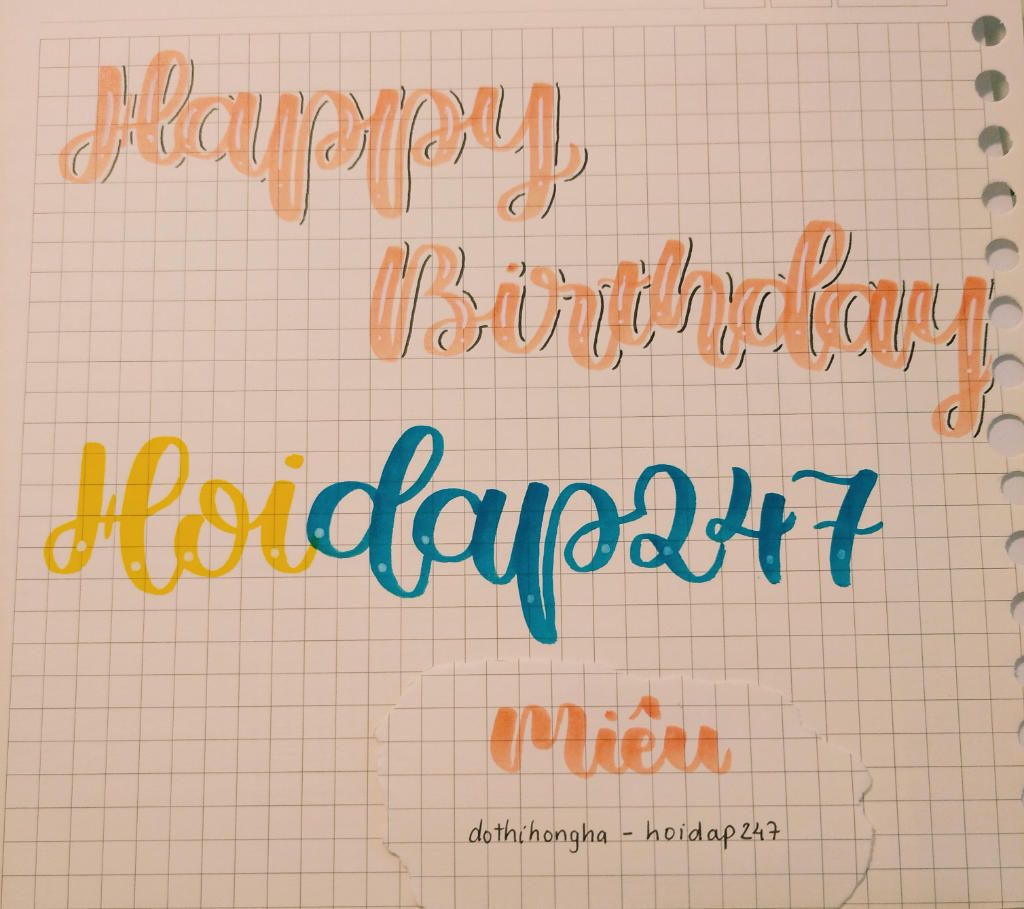 Happy
Birthday
Hoidap247
Miêu
dothihongha - hoidap247